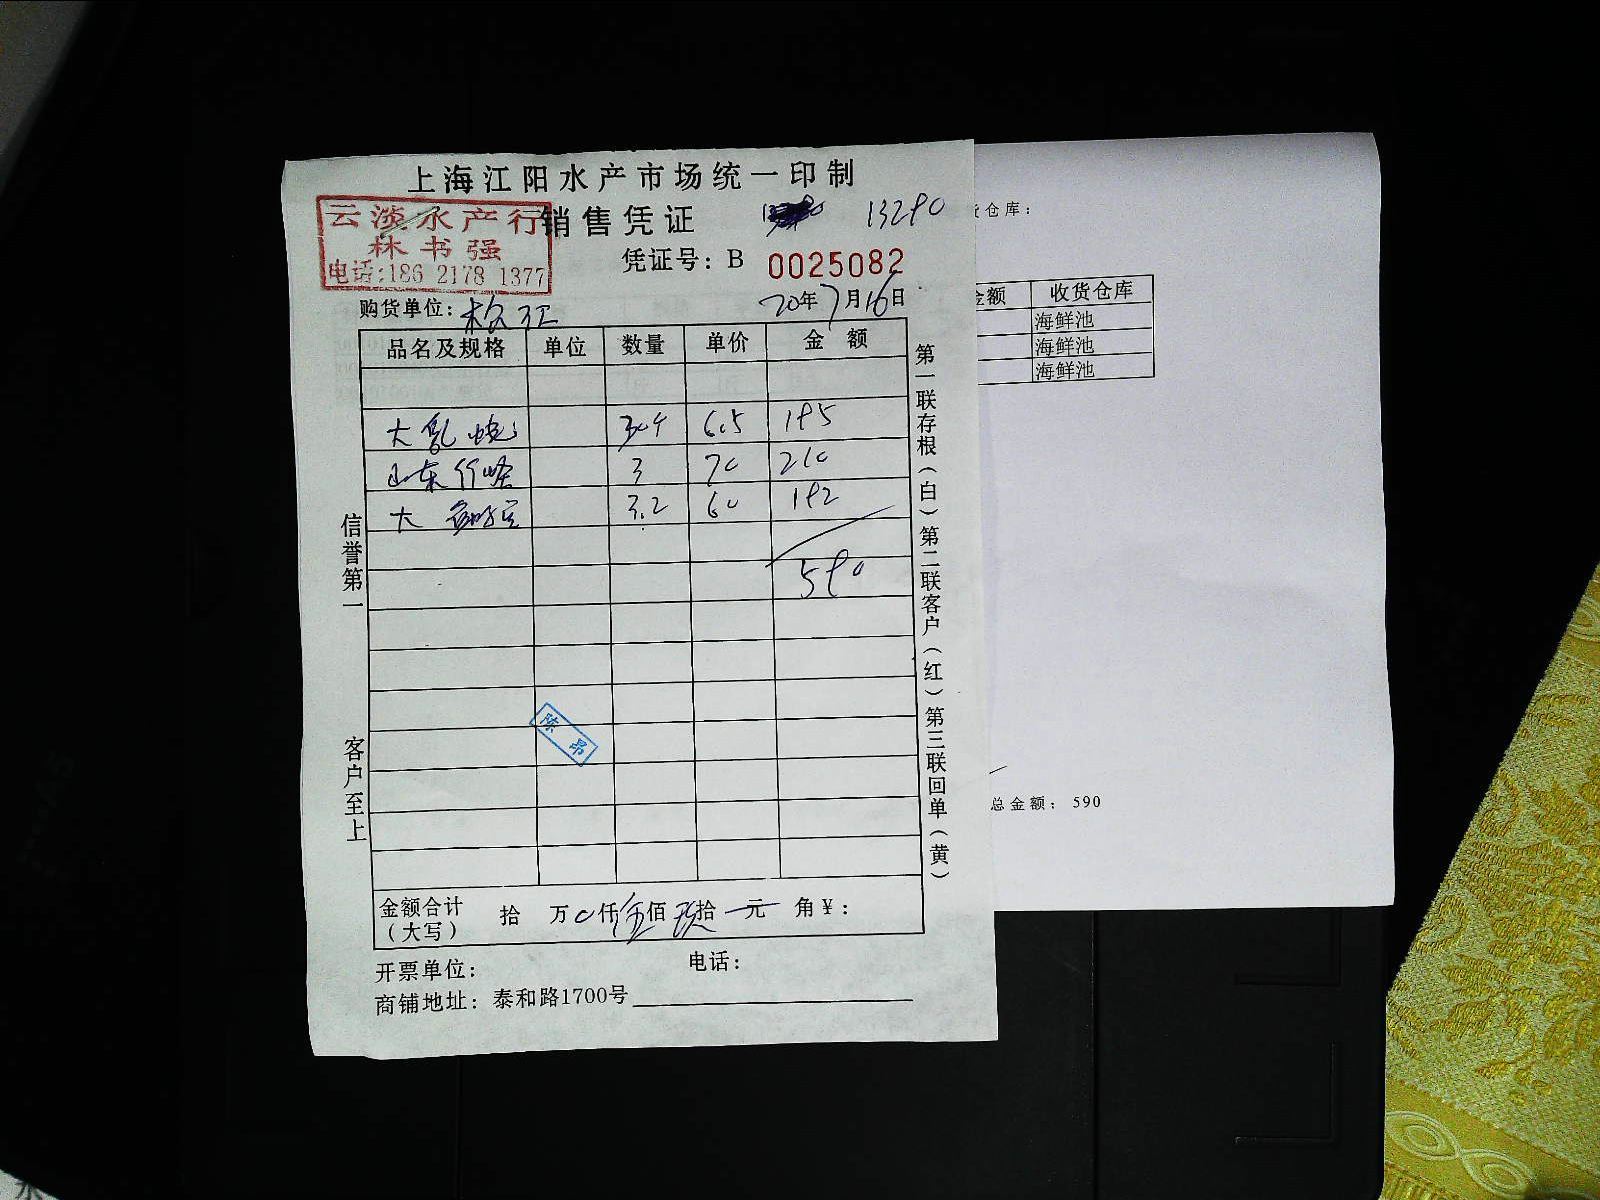 上海江阳水产市场统一印制
云淡水产行
林书强
电话:186 2178 1377
销售凭证
13290
凭证号: B 0025082
购货单位:
20年7月16日
品名及规格 单位 数量 单价 金额
大 65 195
山东 3 70 210
大 3.2 60 192
590
陈昂
金额合计(大写) 拾 万0仟伍佰玖拾 元 角¥:
开票单位: 电话:
商铺地址: 泰和路1700号
信誉第一
客户至上
第一联存根(白)第二联客户(红)第三联回单(黄)
仓库:
金额 收货仓库
海鲜池
海鲜池
海鲜池
总金额: 590